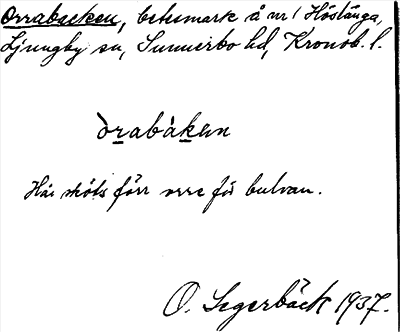 Orrabacken, betesmark å nr 1 Höslänga,
Ljungby sn, Sunnerbo hd, Kronob. l.
òrabàkan
Här sköts förr orre för bulvan.
O. Segerbäck 1937.